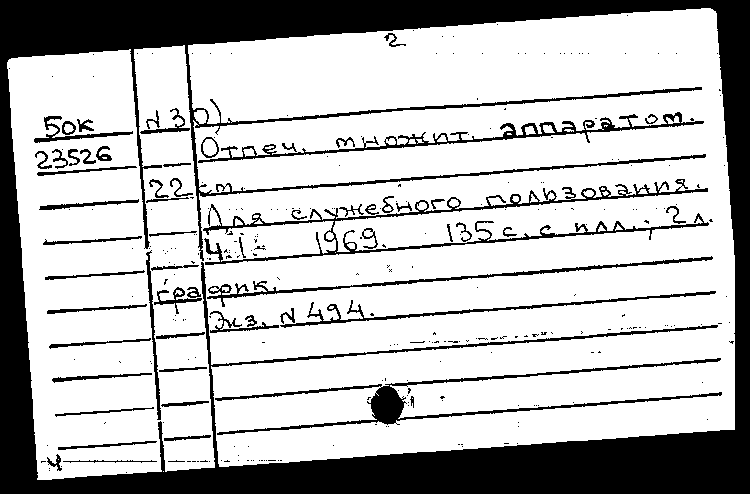 2
50к N30).
23526 Отпеч. множит. аппаратом.
22 см.
Для служебного пользования.
Ч.1. 1969. 135 с. с илл.; 2 л.
график.
Экз. N 494.
ч